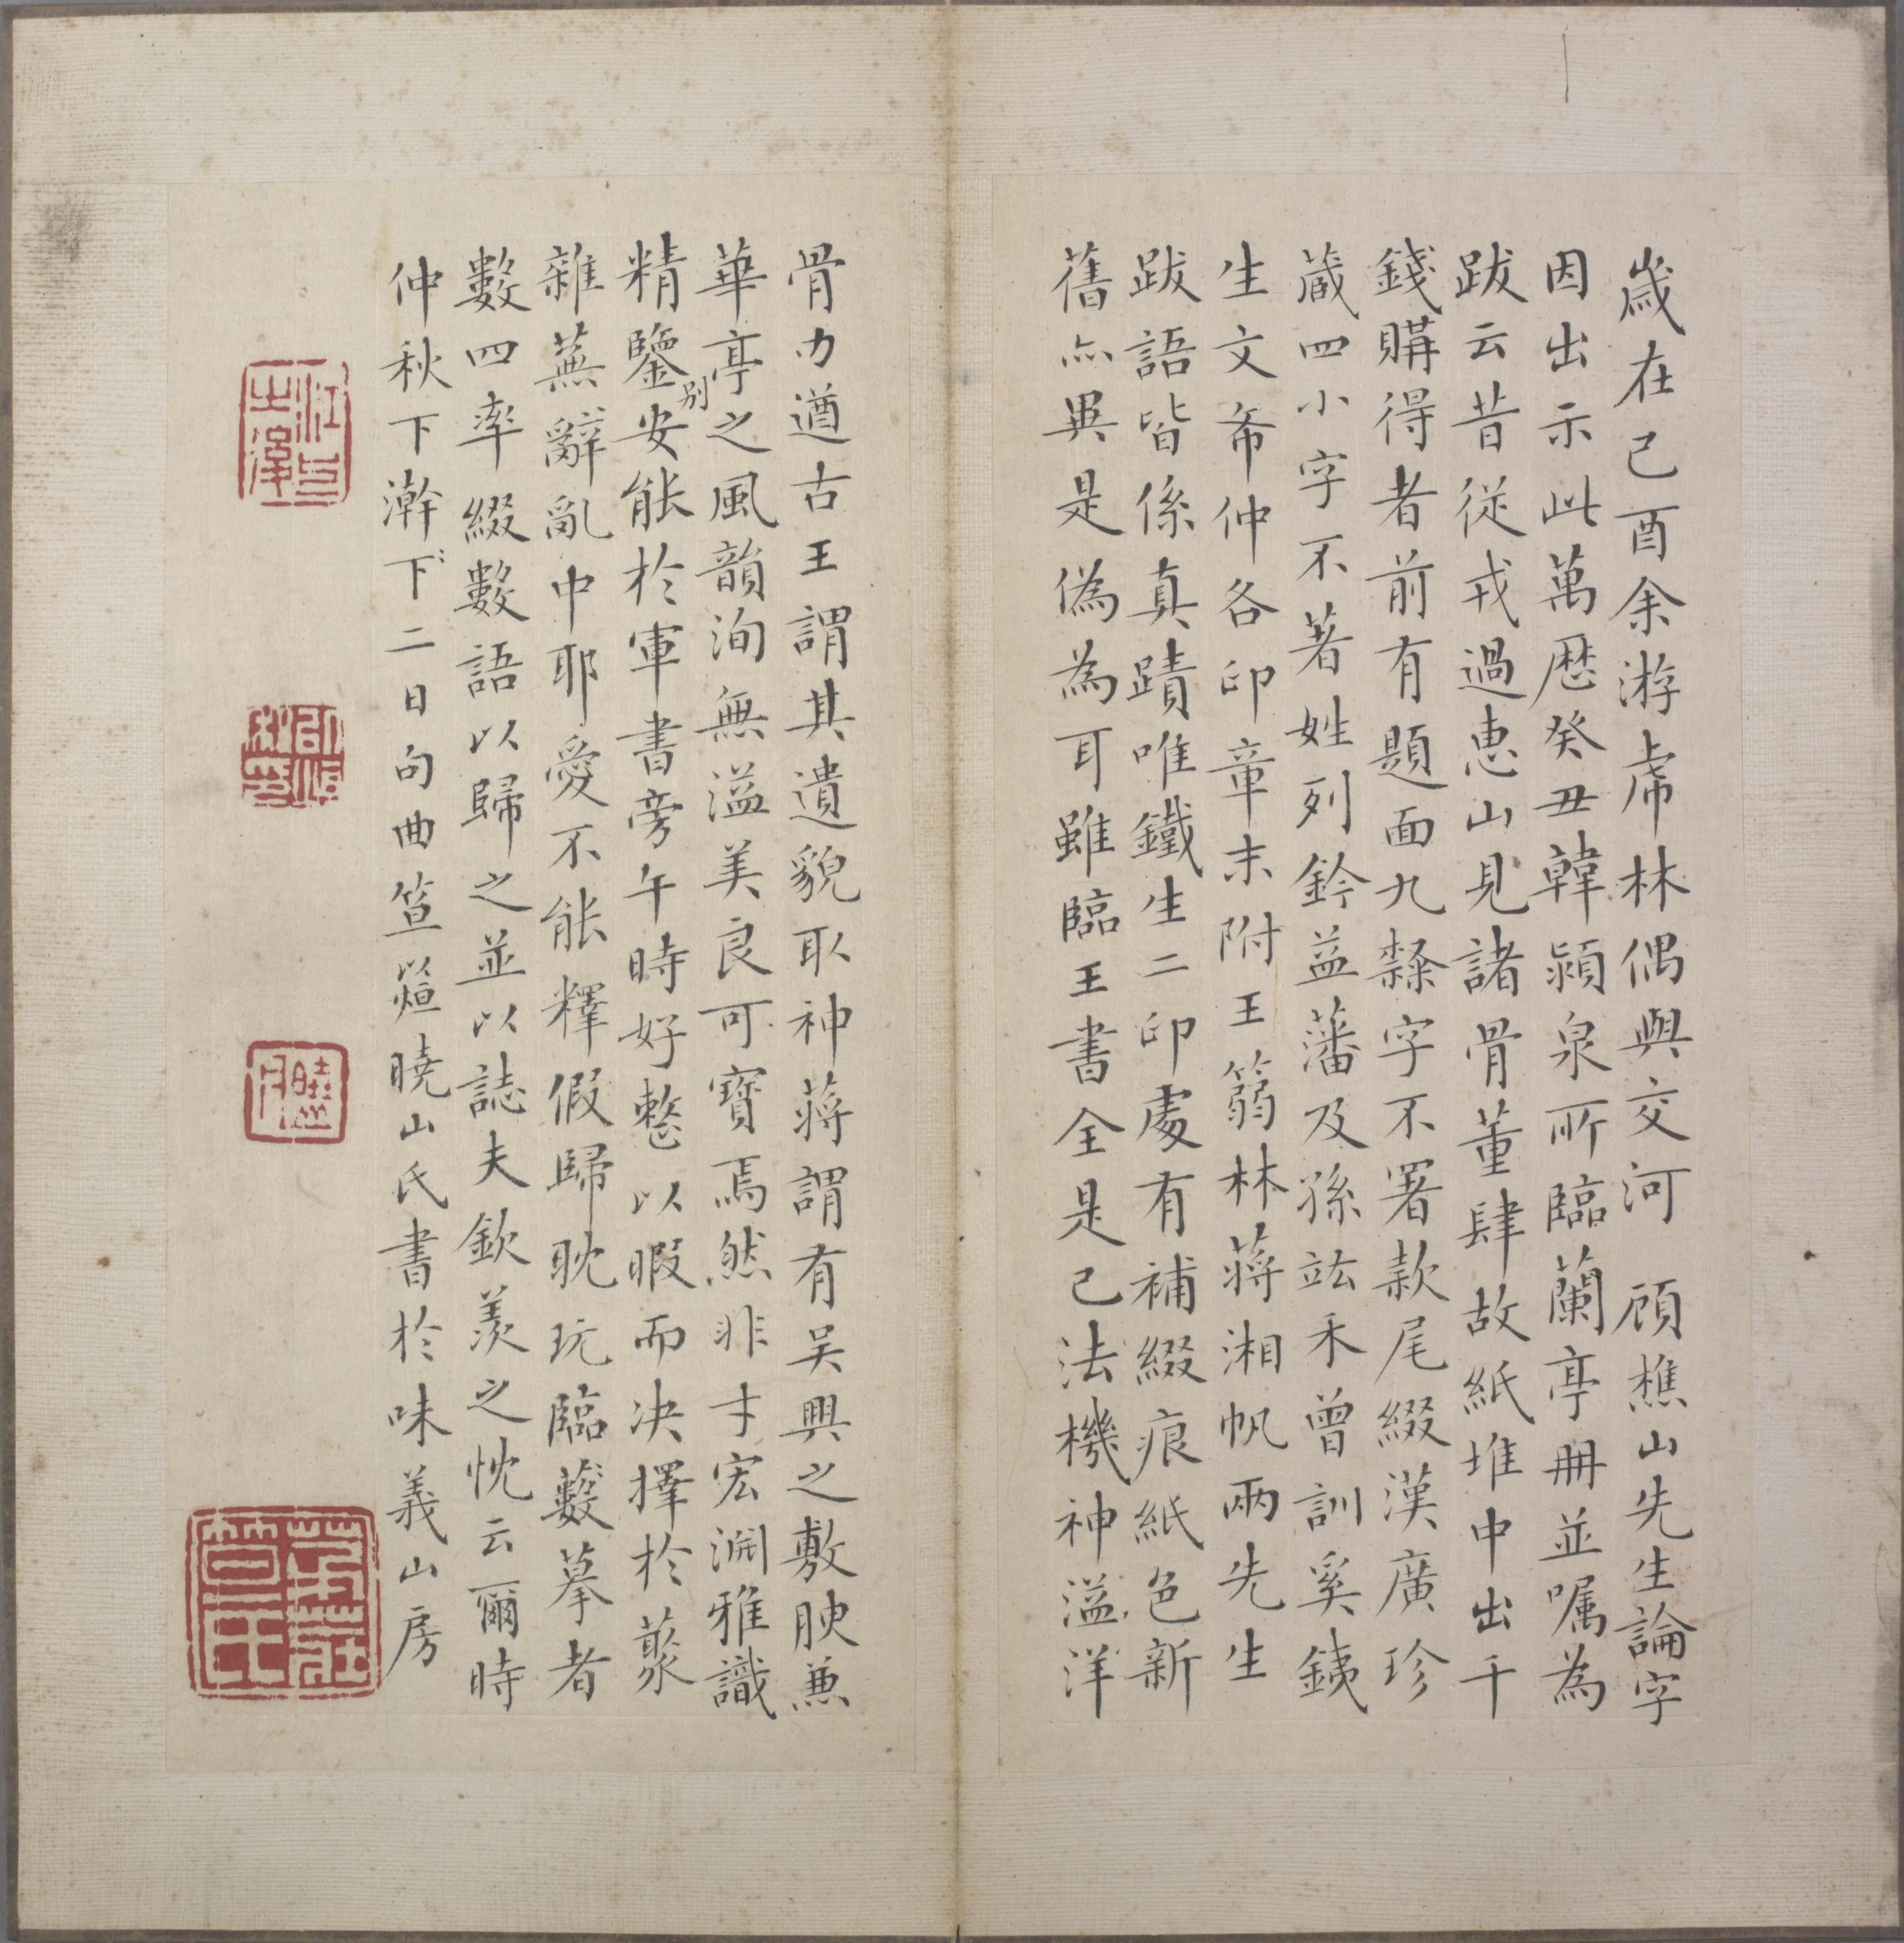 歲在己酉余游虎林偶與交河 顧樵山先生論字
因出示此萬厯癸丑韓潁泉所臨蘭亭冊並嘱為
跋云昔從戎過惠山見諸骨董肆故紙堆中出千
錢購得者前有題面九隸字不署款尾綴漢廣珍
蔵四小字不著姓列鈐益藩及孫竑禾曾訓奚銕
生文帝仲各印章末附王篛林蔣湘帆兩先生
跋語皆係真蹟唯鐵生二印處有補綴痕紙色新
舊亦異是偽為耳雖臨王書全是己法機神溢洋
骨力遒古王謂其遺貌取神蔣謂有吴興之敷腴兼
華亭之風韻洵無溢美良可寶焉然非才宏淵雅識
精鑒別安能於軍書旁午時好整以暇而决擇於蕞
雜蕪辭亂中耶愛不能釋假歸耽玩臨摹者
數四率綴數語以歸之並以誌夫欽羨之忱云爾時
仲秋下澣下二日句曲笪曉山氏書於味義山房